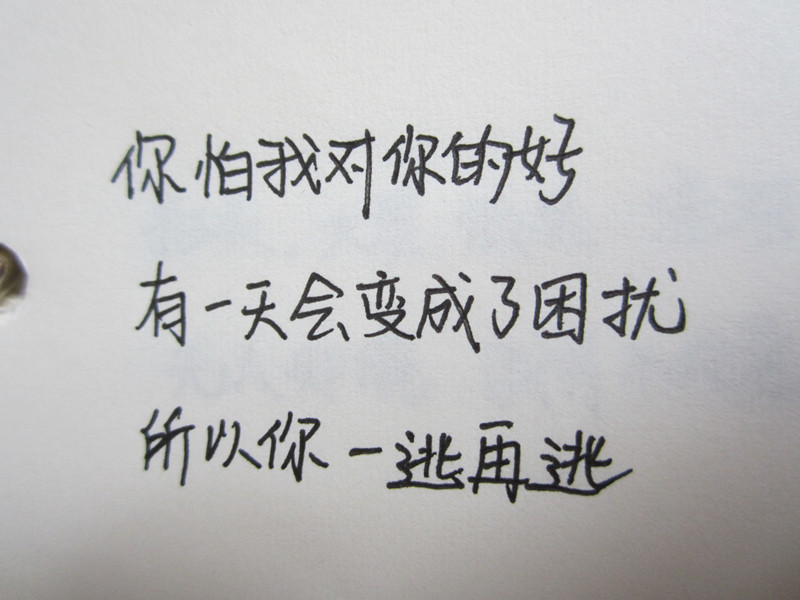 你怕我对你的好
有一天会变成了困扰
所以你一逃再逃